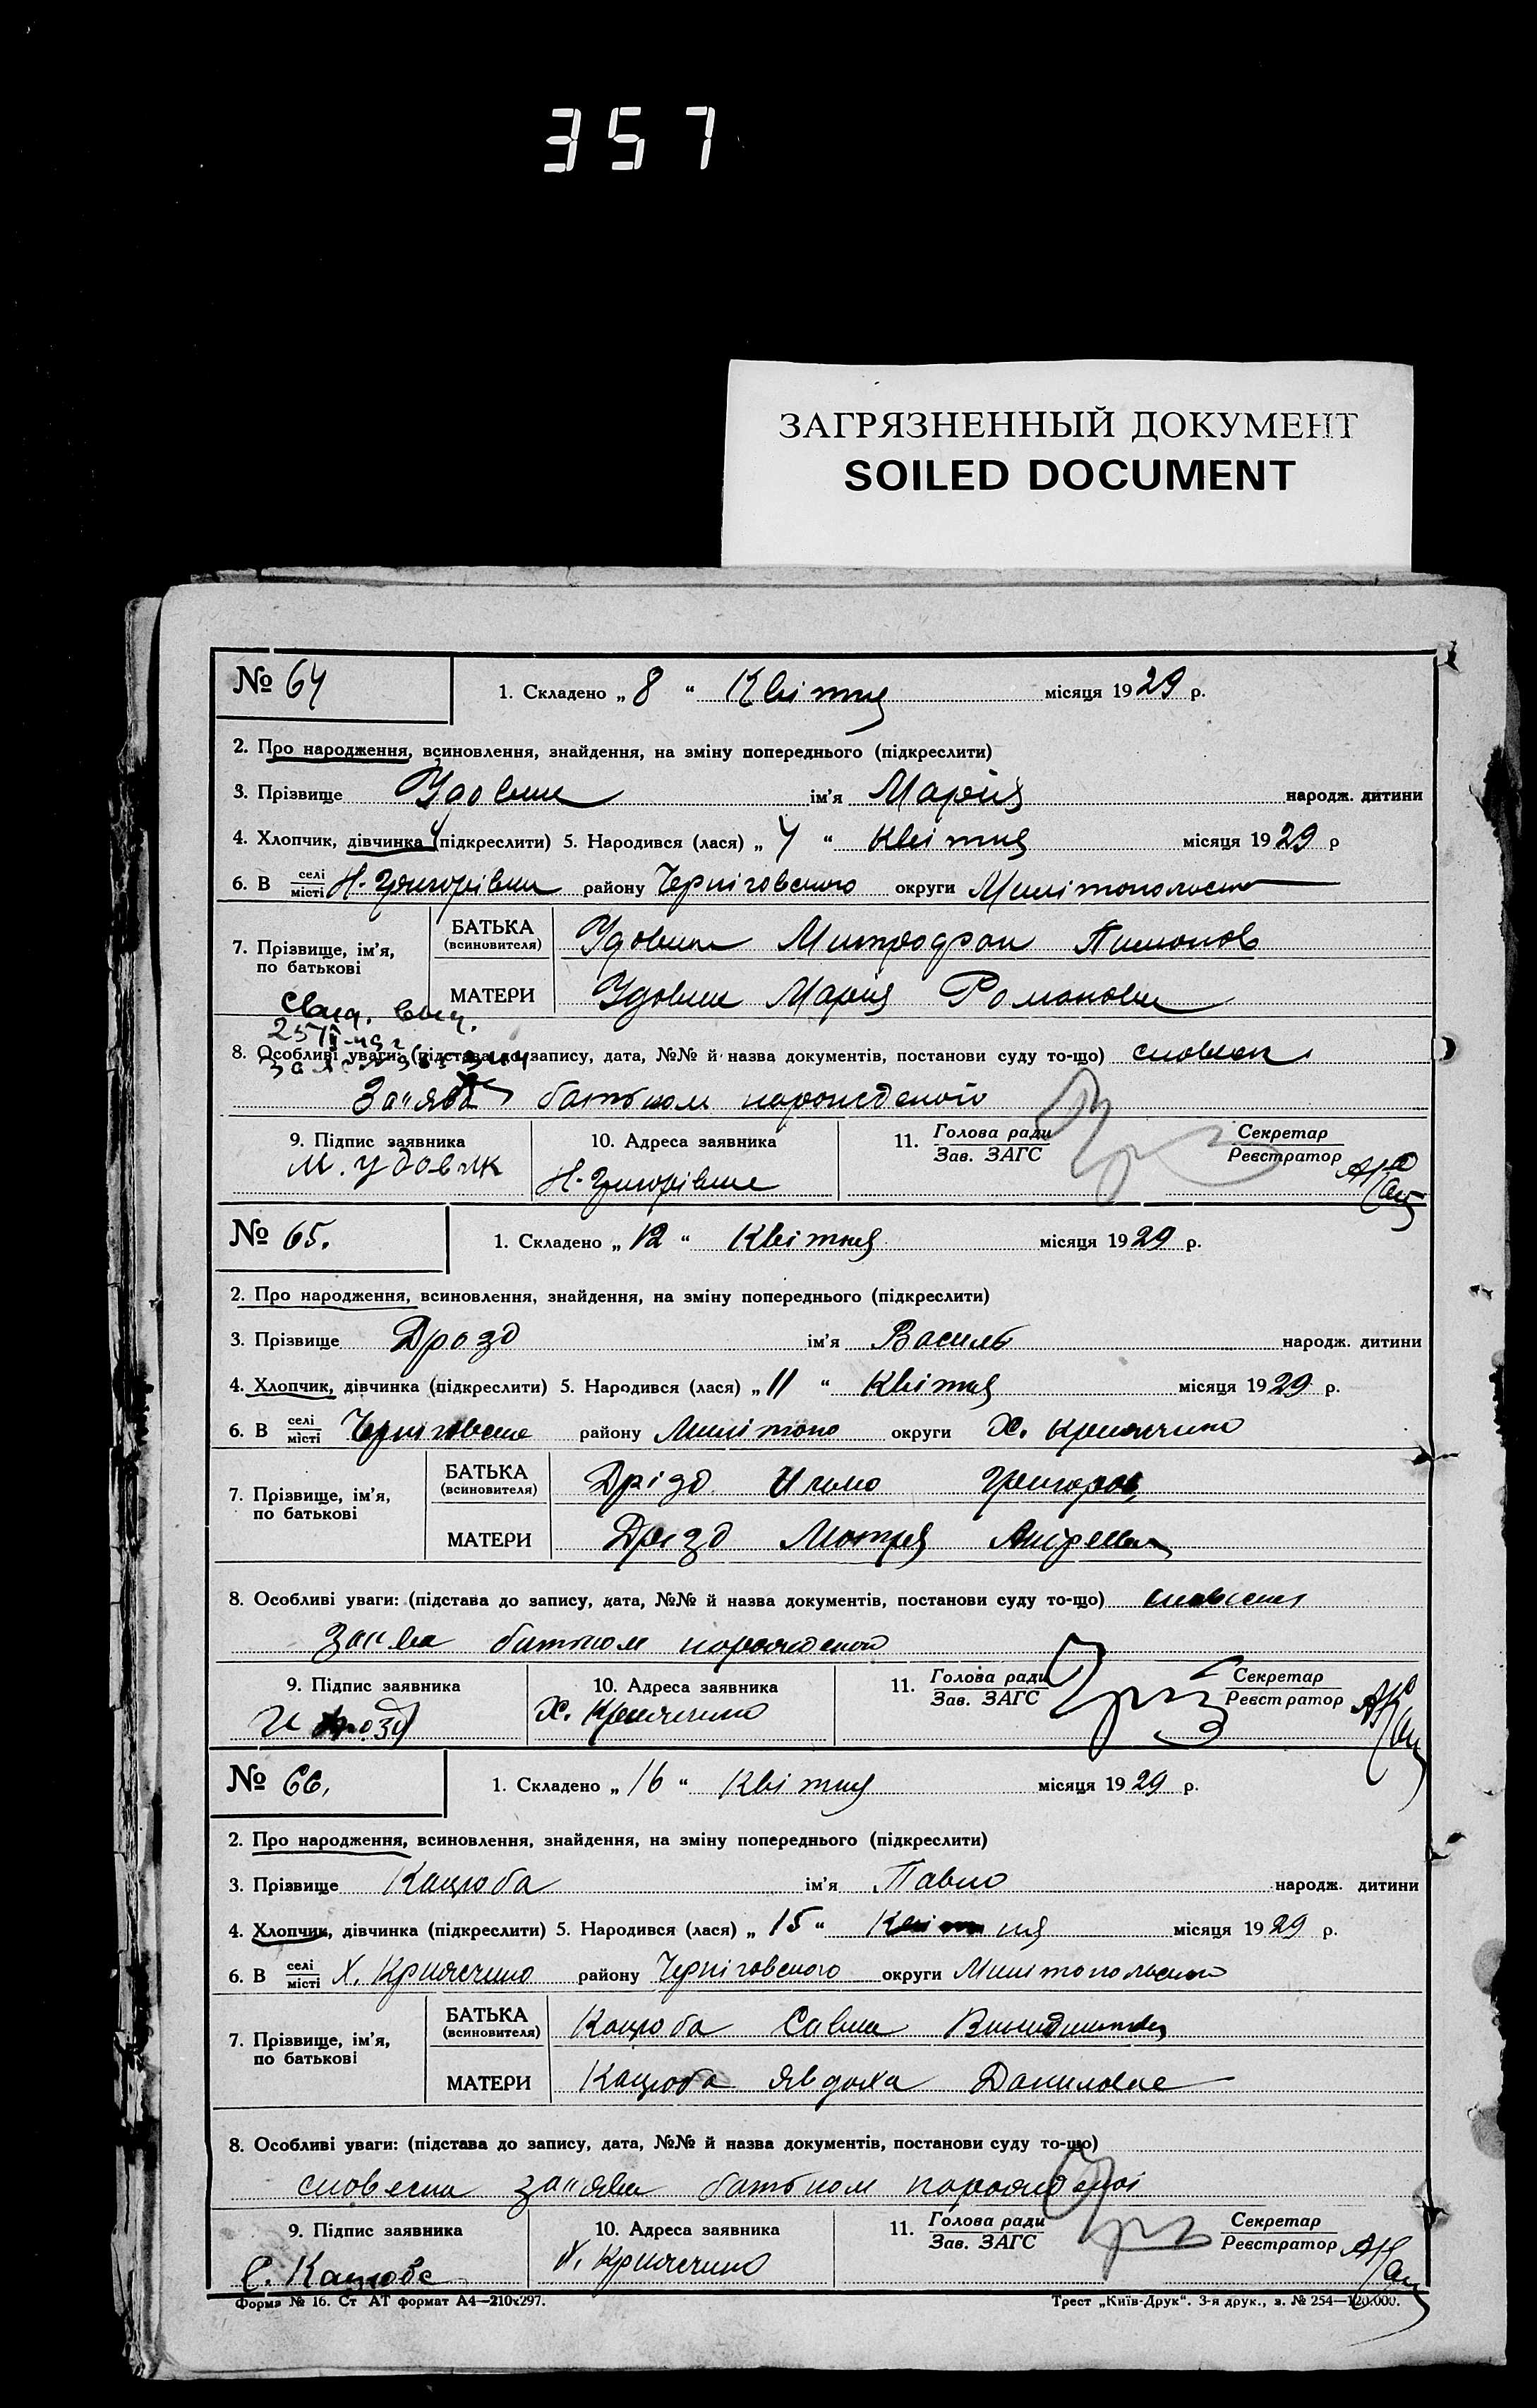 357
ЗАГРЯЗНЕННЫЙ ДОКУМЕНТ
SOILED DOCUMENT
№ 64
1. Складено „ 8 “ Квітня місяця 1929 р.
2. Про народження, всиновлення, знайдення, на зміну попереднього (підкреслити)
3. Прізвище Удовик ім'я Марія народж. дитини
4. Хлопчик, дівчинка (підкреслити) 5. Народився (лася) „ “ Квітня місяця 1929 р
6. В селі місті Н. Григорівка району Черніговського округи
7. Прізвище, ім'я, по батькові
БАТЬКА (всиновителя) Удовик Митрофан
МАТЕРИ Удовик Марія Романовна
8. Особливі уваги: (підстава до запису, дата, №№ й назва документів, постанови суду то-що) словесна
Заява батьком
9. Підпис заявника 10. Адреса заявника 11. Голова ради Зав. ЗАГС Секретар Реєстратор
М. Удовик Н. Григорівка
№ 65.
1. Складено „ 12 “ Квітня місяця 1929 р.
2. Про народження, всиновлення, знайдення, на зміну попереднього (підкреслити)
3. Прізвище Дрозд ім'я Василь народж. дитини
4. Хлопчик, дівчинка (підкреслити) 5. Народився (лася) „ 11 “ Квітня місяця 1929 р.
6. В селі місті району округи Х.
7. Прізвище, ім'я, по батькові
БАТЬКА (всиновителя) Дрізд
МАТЕРИ Дрізд Мотря
8. Особливі уваги: (підстава до запису, дата, №№ й назва документів, постанови суду то-що) словесна
заява батьком
9. Підпис заявника 10. Адреса заявника 11. Голова ради Зав. ЗАГС Секретар Реєстратор
Х.
№ 66.
1. Складено „ 16 “ Квітня місяця 1929 р.
2. Про народження, всиновлення, знайдення, на зміну попереднього (підкреслити)
3. Прізвище Кацюба ім'я Павло народж. дитини
4. Хлопчик, дівчинка (підкреслити) 5. Народився (лася) „ 15 “ Квітня місяця 1929 р.
6. В селі місті Х. району Черніговського округи
7. Прізвище, ім'я, по батькові
БАТЬКА (всиновителя) Кацюба Савка
МАТЕРИ Кацюба Явдоха Даниловна
8. Особливі уваги: (підстава до запису, дата, №№ й назва документів, постанови суду то-що)
словесна заява батьком
9. Підпис заявника 10. Адреса заявника 11. Голова ради Зав. ЗАГС Секретар Реєстратор
С. Кацюба Х.
Форма № 16. Ст АТ формат А4—210x297.
Трест „Київ-Друк“. 3-я друк., з. № 254—120.000.